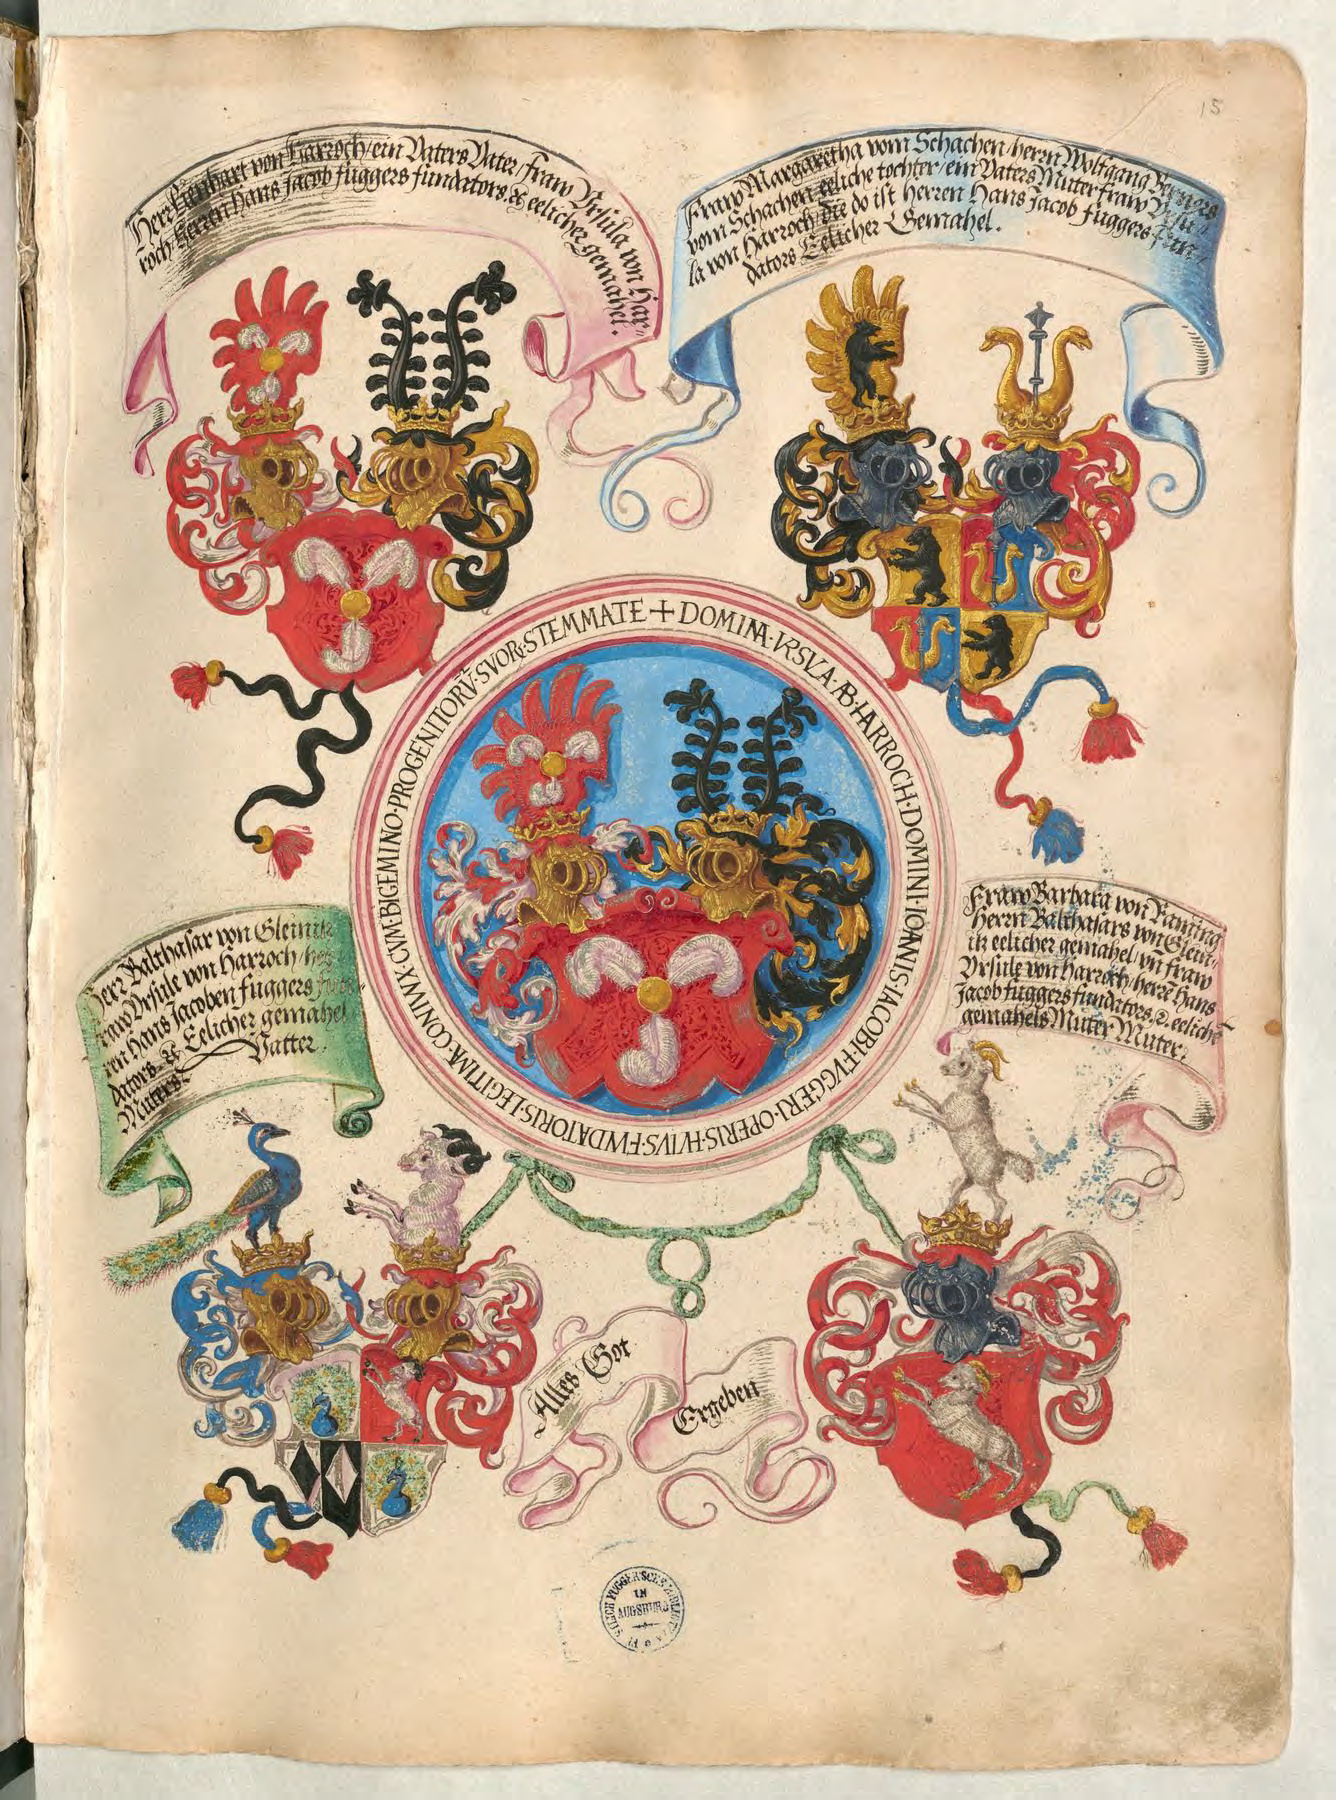 15
Herr Lienhart von Harroch/ein Vaters Vater/fraw Vrsula von Har-
roch Herren Hans Jacob fuggers fundators.&c eelicher gemahel.
Fraw Margaretha vom Schachen/herrn Wolfgang
vom Schachen eeliche tochter/ein Vaters Muter fraw Vrsu-
la von Harroch/die do ist Herren Hans Jacob fuggers Fun-
dators Eelicher Gemahel.
+ DOMINA·VRSVLA·AB·HARROCH·DOMINI·IOANNIS·IACOBI·FVGGERI·OPERIS·HVIVS·FVNDATORIS·LEGITIMA·CONIVNX·CVM·BIGEMINO·PROGENITORV̄·SVOR·STEMMATE
Herr Balthasar von Gleinitz
Fraw Vrsule von Harroch/her-
ren Hans Jacoben fuggers fun-
dators &c Eelicher gemahel
Muters Vatter.
Fraw Barbara von Raming
Herrn Balthasars von Glein-
itz eelicher gemahel/vn fraw
Vrsule von Harroch/herrē Hans
Jacob fuggers fundators,&c. eeliche
gemahels Muter Muter.
Alles Got
Ergeben
FÜRSTLICH FUGGER'SCHE BIBLIOTHEK
IN
AUGSBURG